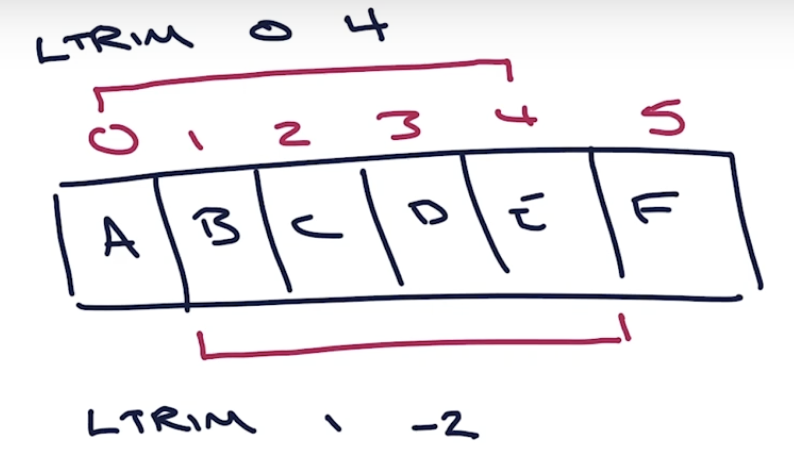 LTRIM 0 4
0 1 2 3 4 5
A B C D E F
LTRIM 1 -2